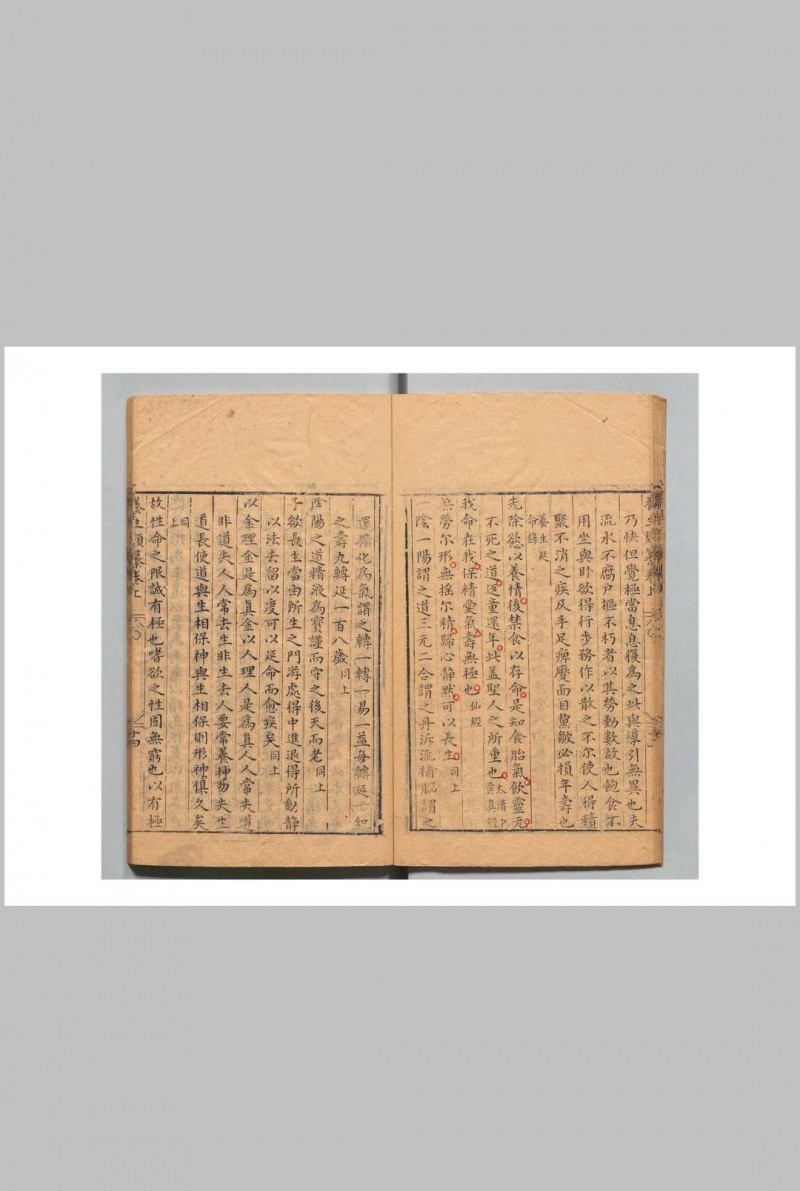 乃快但覺極當息息復為之此與導引無異也夫
流水不腐户樞不朽者以其勞動數故也飽食不
用坐與卧欲得行步務作以散之不尔使人得積
聚不消之疾及手足痺蹷面目黧皺必損年壽也
養生延
命錄
先除慾以養情後禁食以存命是知食胎氣飲靈元
不死之道返童還年此盖聖人之所重也太清中
黄真經
我命在我保精愛氣壽無極也仙經
無勞尔形無揺尔精歸心静默可以長生同上
一陰一陽謂之道三元二合謂之丹泝流補腦謂之
還 化為氣謂之轉一轉一易一益每轉延一 如
之壽九轉延一百八歲同上
陰陽之道精液為寶謹而守之後天而老同上
子欲長生當由所生之門游處得中進退得所動静
以法去留以度可以延命而愈疾矣同上
以金理金是為真金以人理人是為真人人常失道
非道失人人常去生非生去人要常養神勿失生
道長使道與生相保神與生相保則形神俱久矣
同
上
故性命之限誠有極也嗜欲之性固無窮也以有極
養生類纂卷上